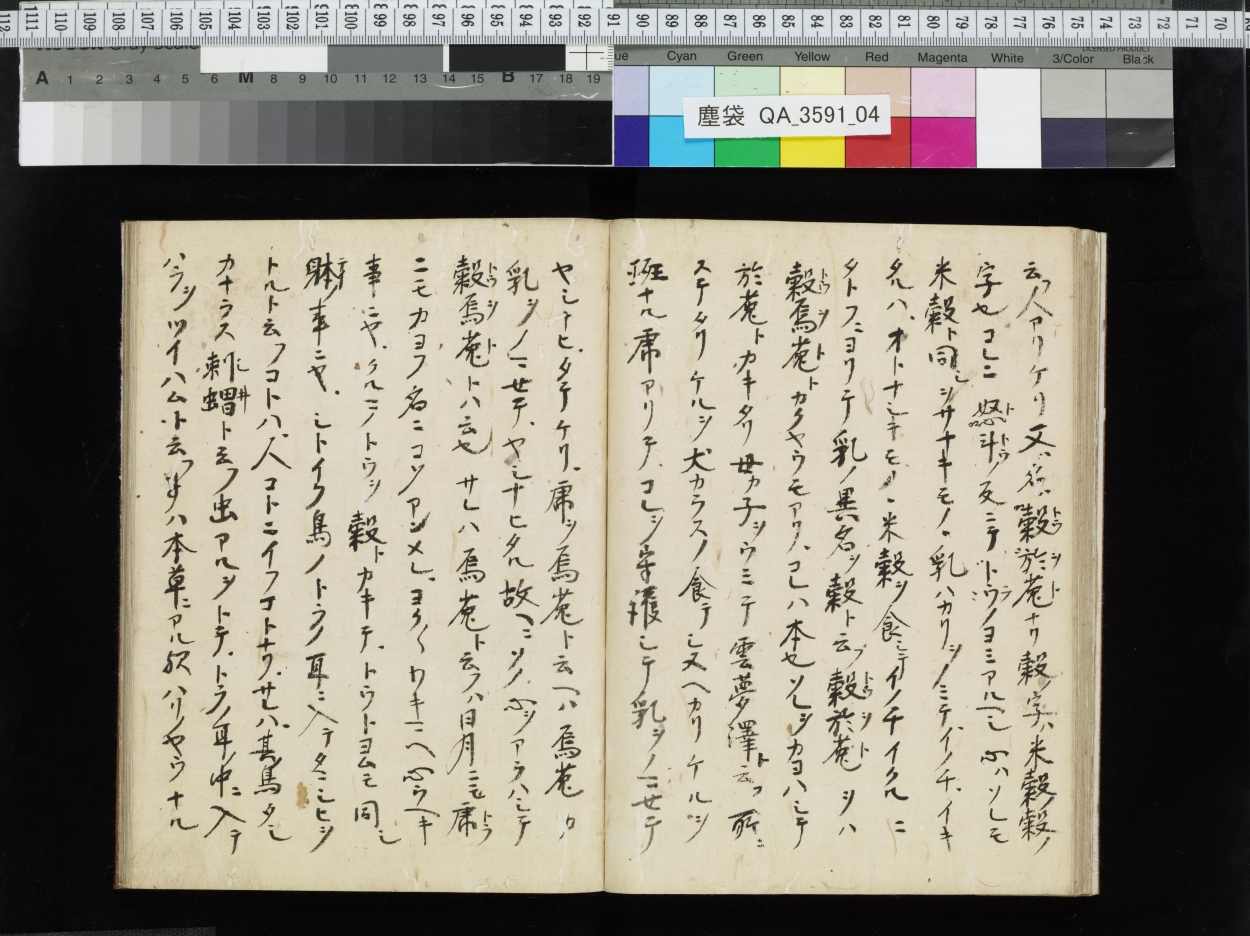 112 111 110 109 108 107 106 105 104 103 102 101 100 99 98 97 96 95 94 93 92 91 90 89 88 87 86 85 84 83 82 81 80 79 78 77 76 75 74 73 72 71 70 69
Cyan Green Yellow Red Magenta White 3/Color Black
LICENSED PRODUCT
A 1 2 3 4 5 6 M 8 9 10 11 12 13 14 15 B 17 18 19
塵袋 QA_3591_04
云フ人アリケリ又ハ名ハ穀於菟ナリ穀ノ字ハ米穀ノ穀ノ
字也コレニ怒斗ノ反ニテトウノヨミアルヘシ心ハソレモ
米穀ト同シヲサナキモノハ乳ハカリヲノミテイノチイキ
タルハオトナシキモノノ米穀ヲ食シテイノチイクルニ
タトフニヨリテ乳ノ異名ヲ穀ト云フ穀於菟ヲハ
穀焉菟トカクヤウモアリコレハ本也ソレヲカヨハシテ
於菟トカキタリ母カ子ヲウミテ雲夢澤ト云フ所ニ
ステタリケルヲ犬カラスノ食テシヌヘカリケルヲ
班ナル席アリテコレヲ守護シテ乳ヲノマセテ
ヤシナヒタテケリ席ヲ焉菟ト云ヘハ焉菟カ
乳ヲノマセテヤシナヒタル故ヘニソノ心ヲアラハシテ
穀焉菟トハ云也サレハ焉菟ト云フハ日月ニモ席
ニモカヨフ名ニコソアンメレヨクヽワキマヘ心ウヘキ
事ニヤクルマノトウヲ穀トカキテトウトヨムモ同シ
躰ノ事ニヤ シトイフ鳥ノトラノ耳ニ入テタマシヒヲ
トルト云フコトハ人コトニイフコトナリサレハ其鳥タシ
カナラス 刺蝟ト云フ虫アルヲトテトラノ耳ノ中ニ入テ
ハラヲツイハムト云フ事ハ本草ニアル歟ハリノヤウナル